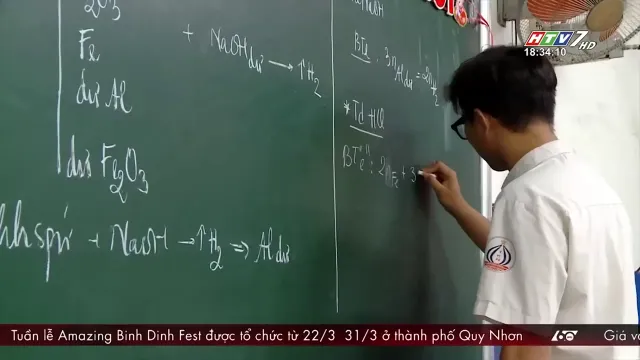 2O3
Fe
dư Al
dư Fe2O3
+ NaOH dư → ↑H2
hhspứ + NaOH → ↑H2 ⇒ Al dư
BTe: 3nAl dư = 2nH2
* Td HCl
BTe: 2nFe + 3
HTV7 HD
18:34:10
Tuần lễ Amazing Binh Dinh Fest được tổ chức từ 22/3 31/3 ở thành phố Quy Nhơn
60
Giá v